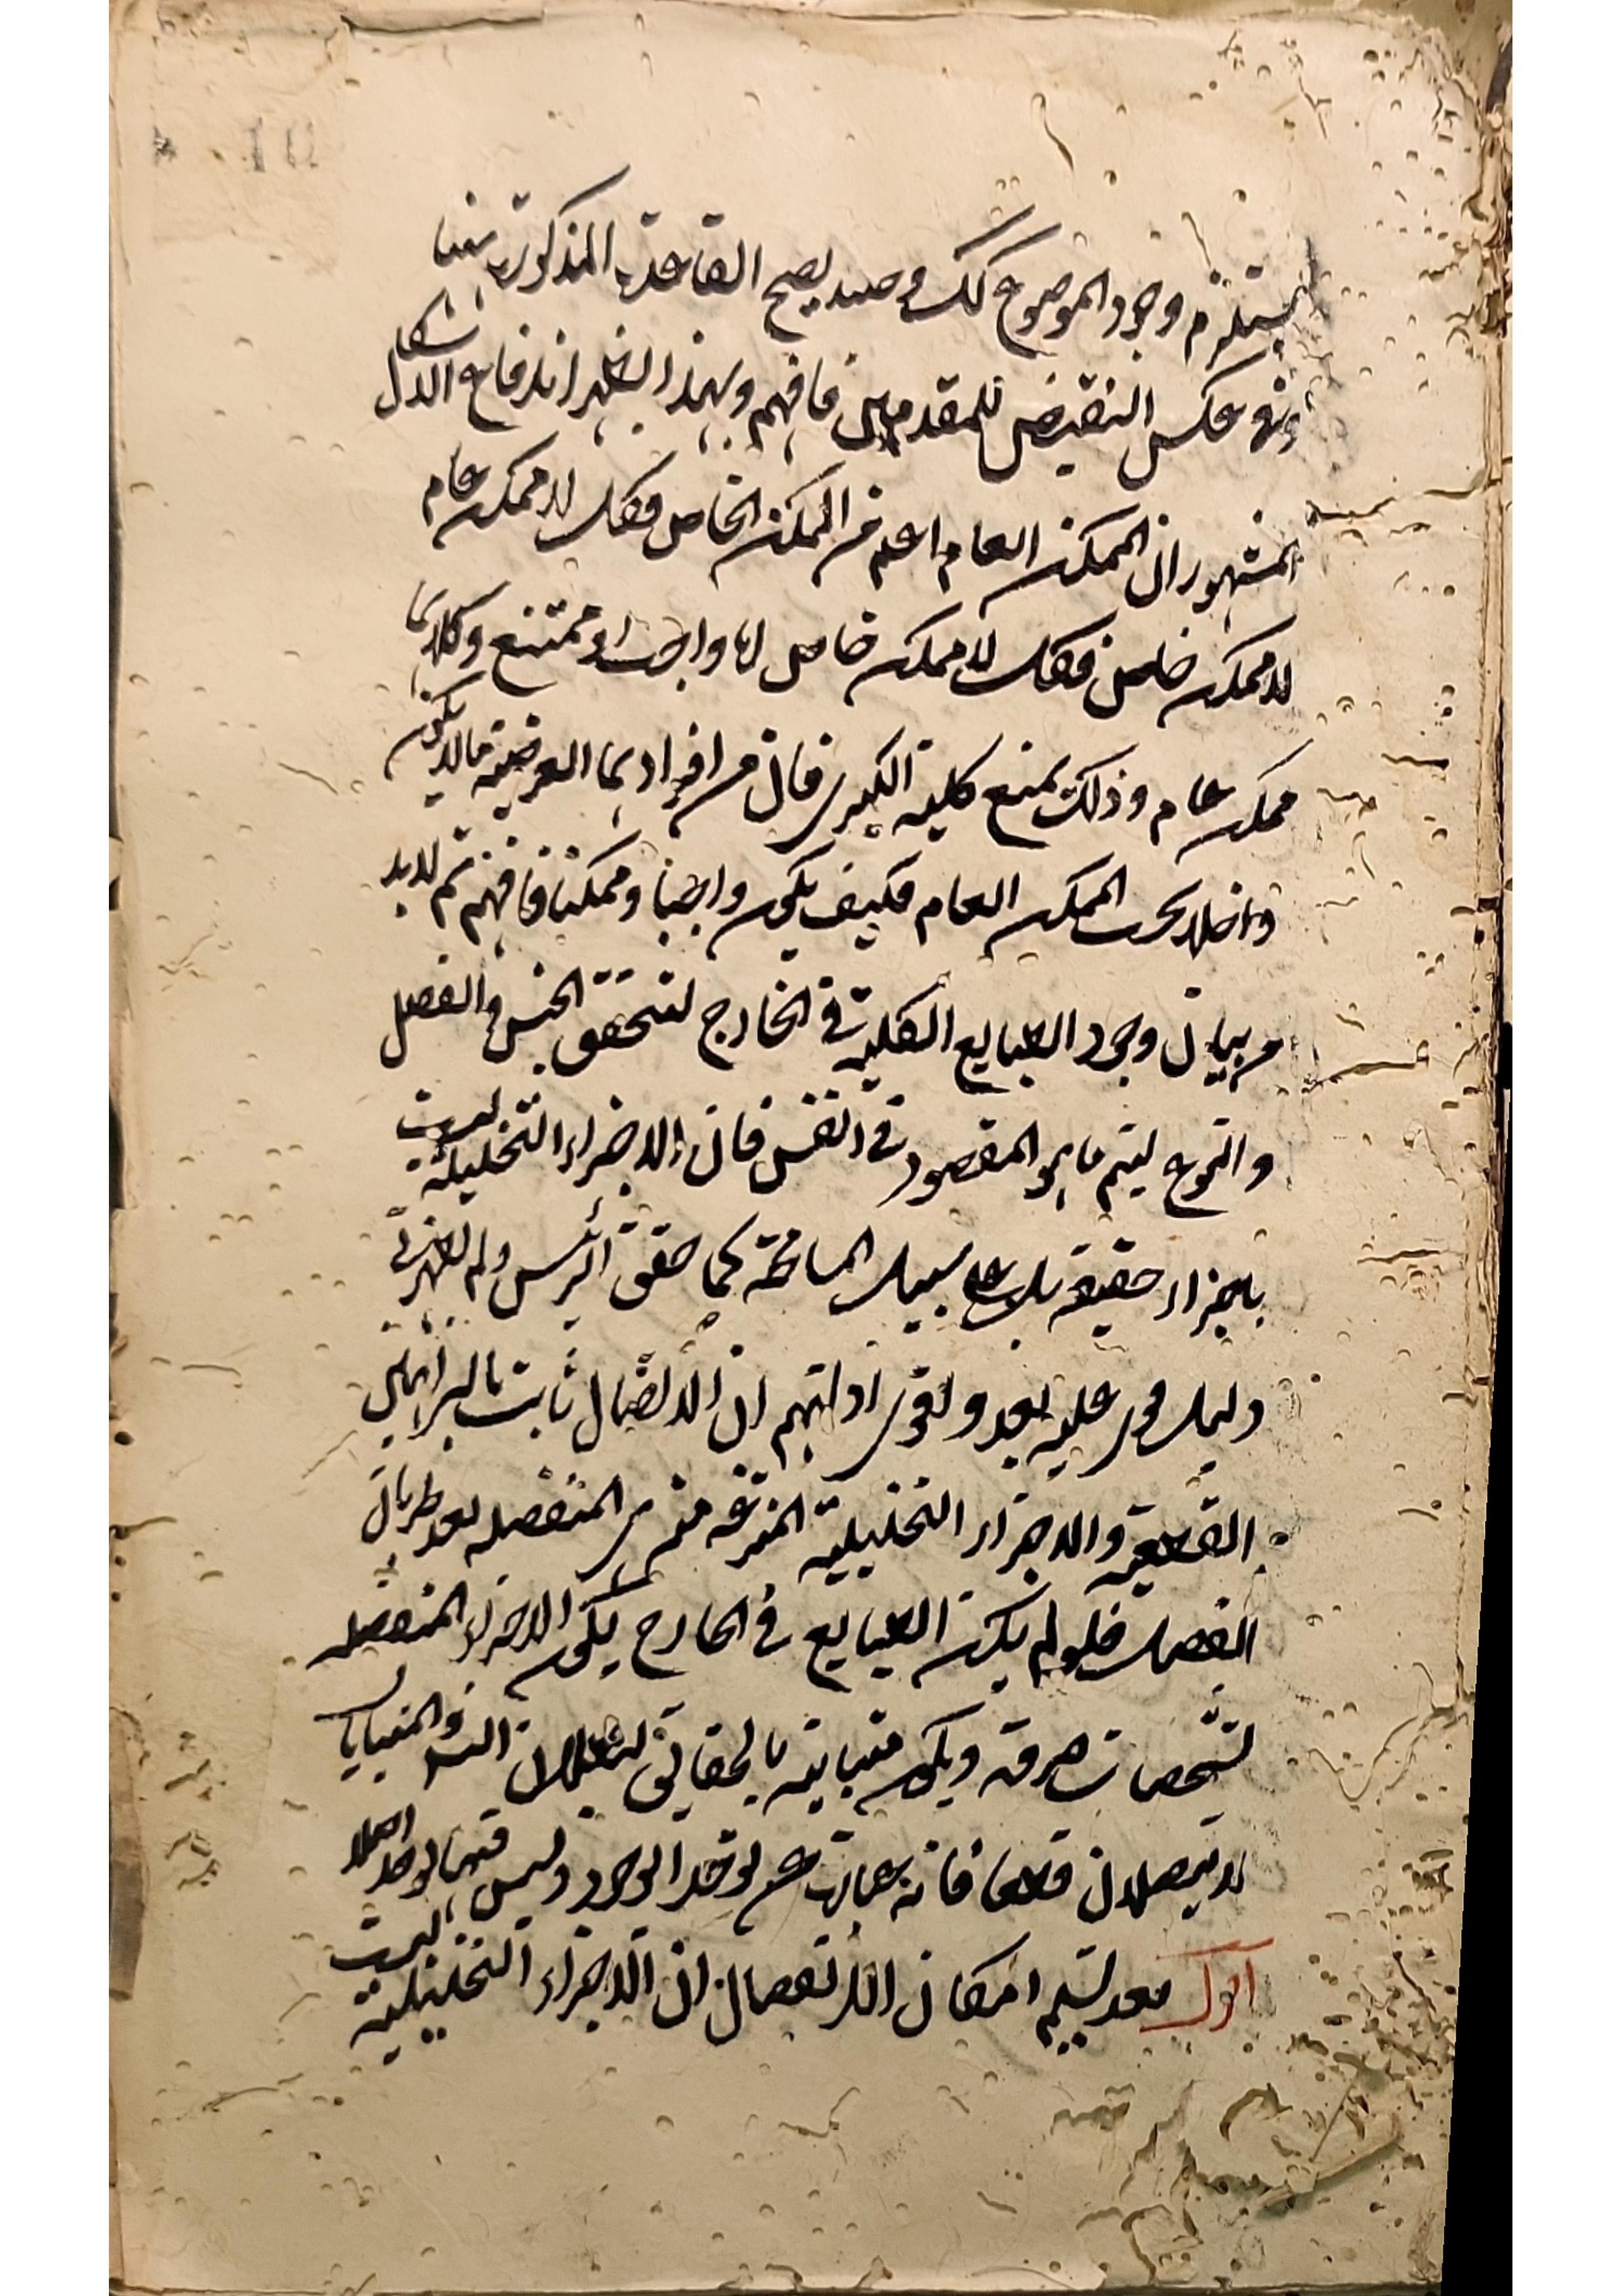 يستلزم وجود الموضوع كك وحينئذ يصح القاعدة المذكورة بينهما
وفي عكس النقيض للمقدمتين فافهم وبهذا يظهر اندفاع الاشكال
المشهور ان الممكن العام اعم من الممكن الخاص فكل لا ممكن عام
لا ممكن خاص فكل لا ممكن خاص اما واجب او ممتنع وكلاهما
ممكن عام وذلك بمنع كلية الكبرى فان من افرادها الفرضية ما لا يكون
داخلا تحت الممكن العام فكيف يكون واجبا وممكنا فافهم ثم لا بد
من بيان وجود الطبايع الكلية في الخارج لتحقق الجنس والفصل
والنوع ليتم ما هو المقصود في النفس فان الاجزاء التحليلية ليست
باجزاء حقيقة بل على سبيل المسامحة كما حققه الرئيس ولم يظهر لي
دليل قوي عليه بعد واقوى ادلتهم ان الاتصال ثابت بالبراهين
القطعية والاجزاء التحليلية المنتزعة منه هي المنفصلة بعد طريان
الفصل فلو لم يكن الطبايع في الخارج يكون الاجزاء المنفصلة
تشخصات صرفة ويكون متباينة بالحقائق لبطلان والمتباينان
لا يتصلان قطعا فانه عبارة عن توحد الوجود وليس فيهما توحد اصلا
اقول بعد تسليم امكان الاتصال ان الاجزاء التحليلية ليست